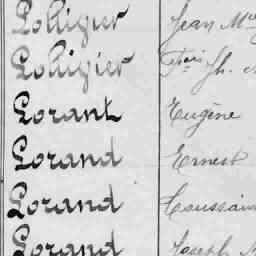 Lolligier Jean M
Lolligier Fçois Jh.
Lorant Eugène
Lorand Ernest
Lorand Toussain
Lorand Joseph